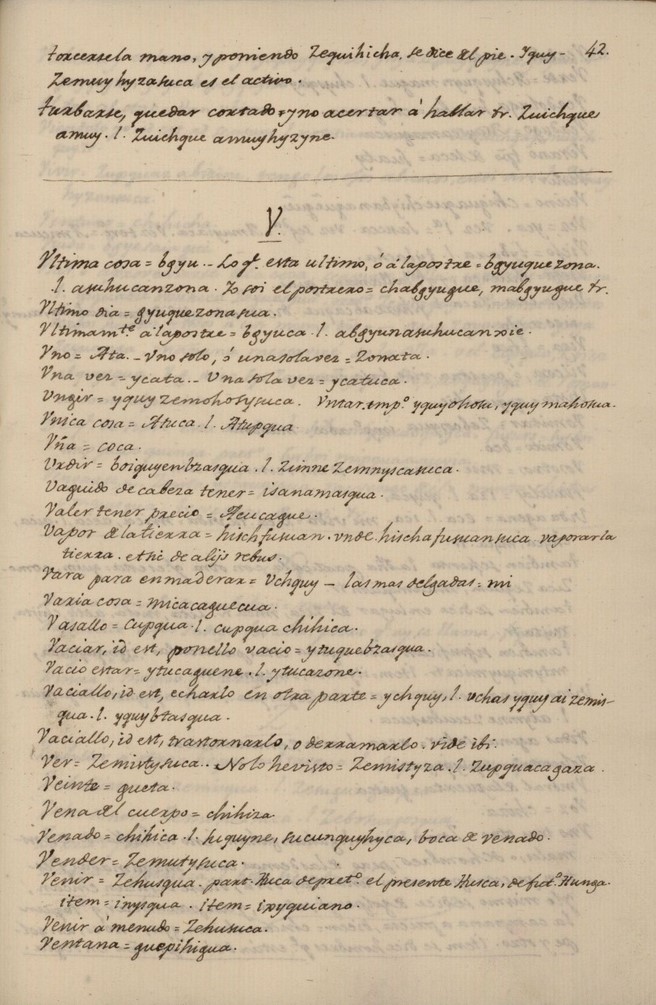 torcersela mano, y poniendo Zequihicha, se dice del pie. Yquy- 42.
Zemuyhyzasuca es el activo.
turbarse, quedar cortado, y no acertar á hablar tr. Zuichque
amuy. l. Zuichque amuyhyzyne.
V.
Vltima cosa = bgyu .. Lo q.e esta ultimo, ó álapostre = bgyuquezona.
l. asuhucanzona. Yo soi el postrero = chabgyugue, mabgyugue tr.
Vltimo dia = gyuquezonasua.
Vltimam.te álapostre = bgyuca. l. abgyunasuhucanxie.
Vno = Ata. - Vno solo, ó unasolavez = Zonata.
Vna vez = ycata .. Vna sola vez = ycatuca.
Vngir = yquyzemohosysuca. Vntar. imp.o yquyohosu, yquymahosua.
Vnica cosa = Atuca. l. Atupqua
Vña = coca.
Vrdir = boiquyenbzasqua. l. Zimne Zemnyscasuca.
Vaguido de cabeza tener = isanamasqua.
Valer tener precio = Acucague.
Vapor de la tierra = hischfusuan. unde hischafusuansuca vaporar la
tierra. et sic de alijs rebus.
Vara para enmaderar = Vchquy - las mas delgadas = mi
Varia cosa = micacaguecua.
Vasallo = Cupqua. l. cupqua chihica.
Vaciar, id est, ponello vacio = ytuquebzasqua.
Vacio estar = ytucaguene. l. ytucazone.
Vaciallo, id est, echarlo en otra parte = ychquy, l. uchas yquy ai zemis-
qua. l. yquybtasqua.
Vaciallo, id est, trastornarlo, o derramarlo. vide ibi.
Ver = Zemistysuca .. No lo he visto = Zemistyza. l. Zupquacagaza.
Veinte = gueta.
Vena del cuerpo = chihiza
Venado = chihica. l. guquyne, sucunguyhyca, boca de venado.
Vender = Zemutysuca.
Venir = Zehusqua. part. Huca depret.o el presente Husca, de fut.o Hunga.
item = inysqua. item = ixyquiano.
Venir á menudo = Zehusuca.
Ventana = guepihigua.